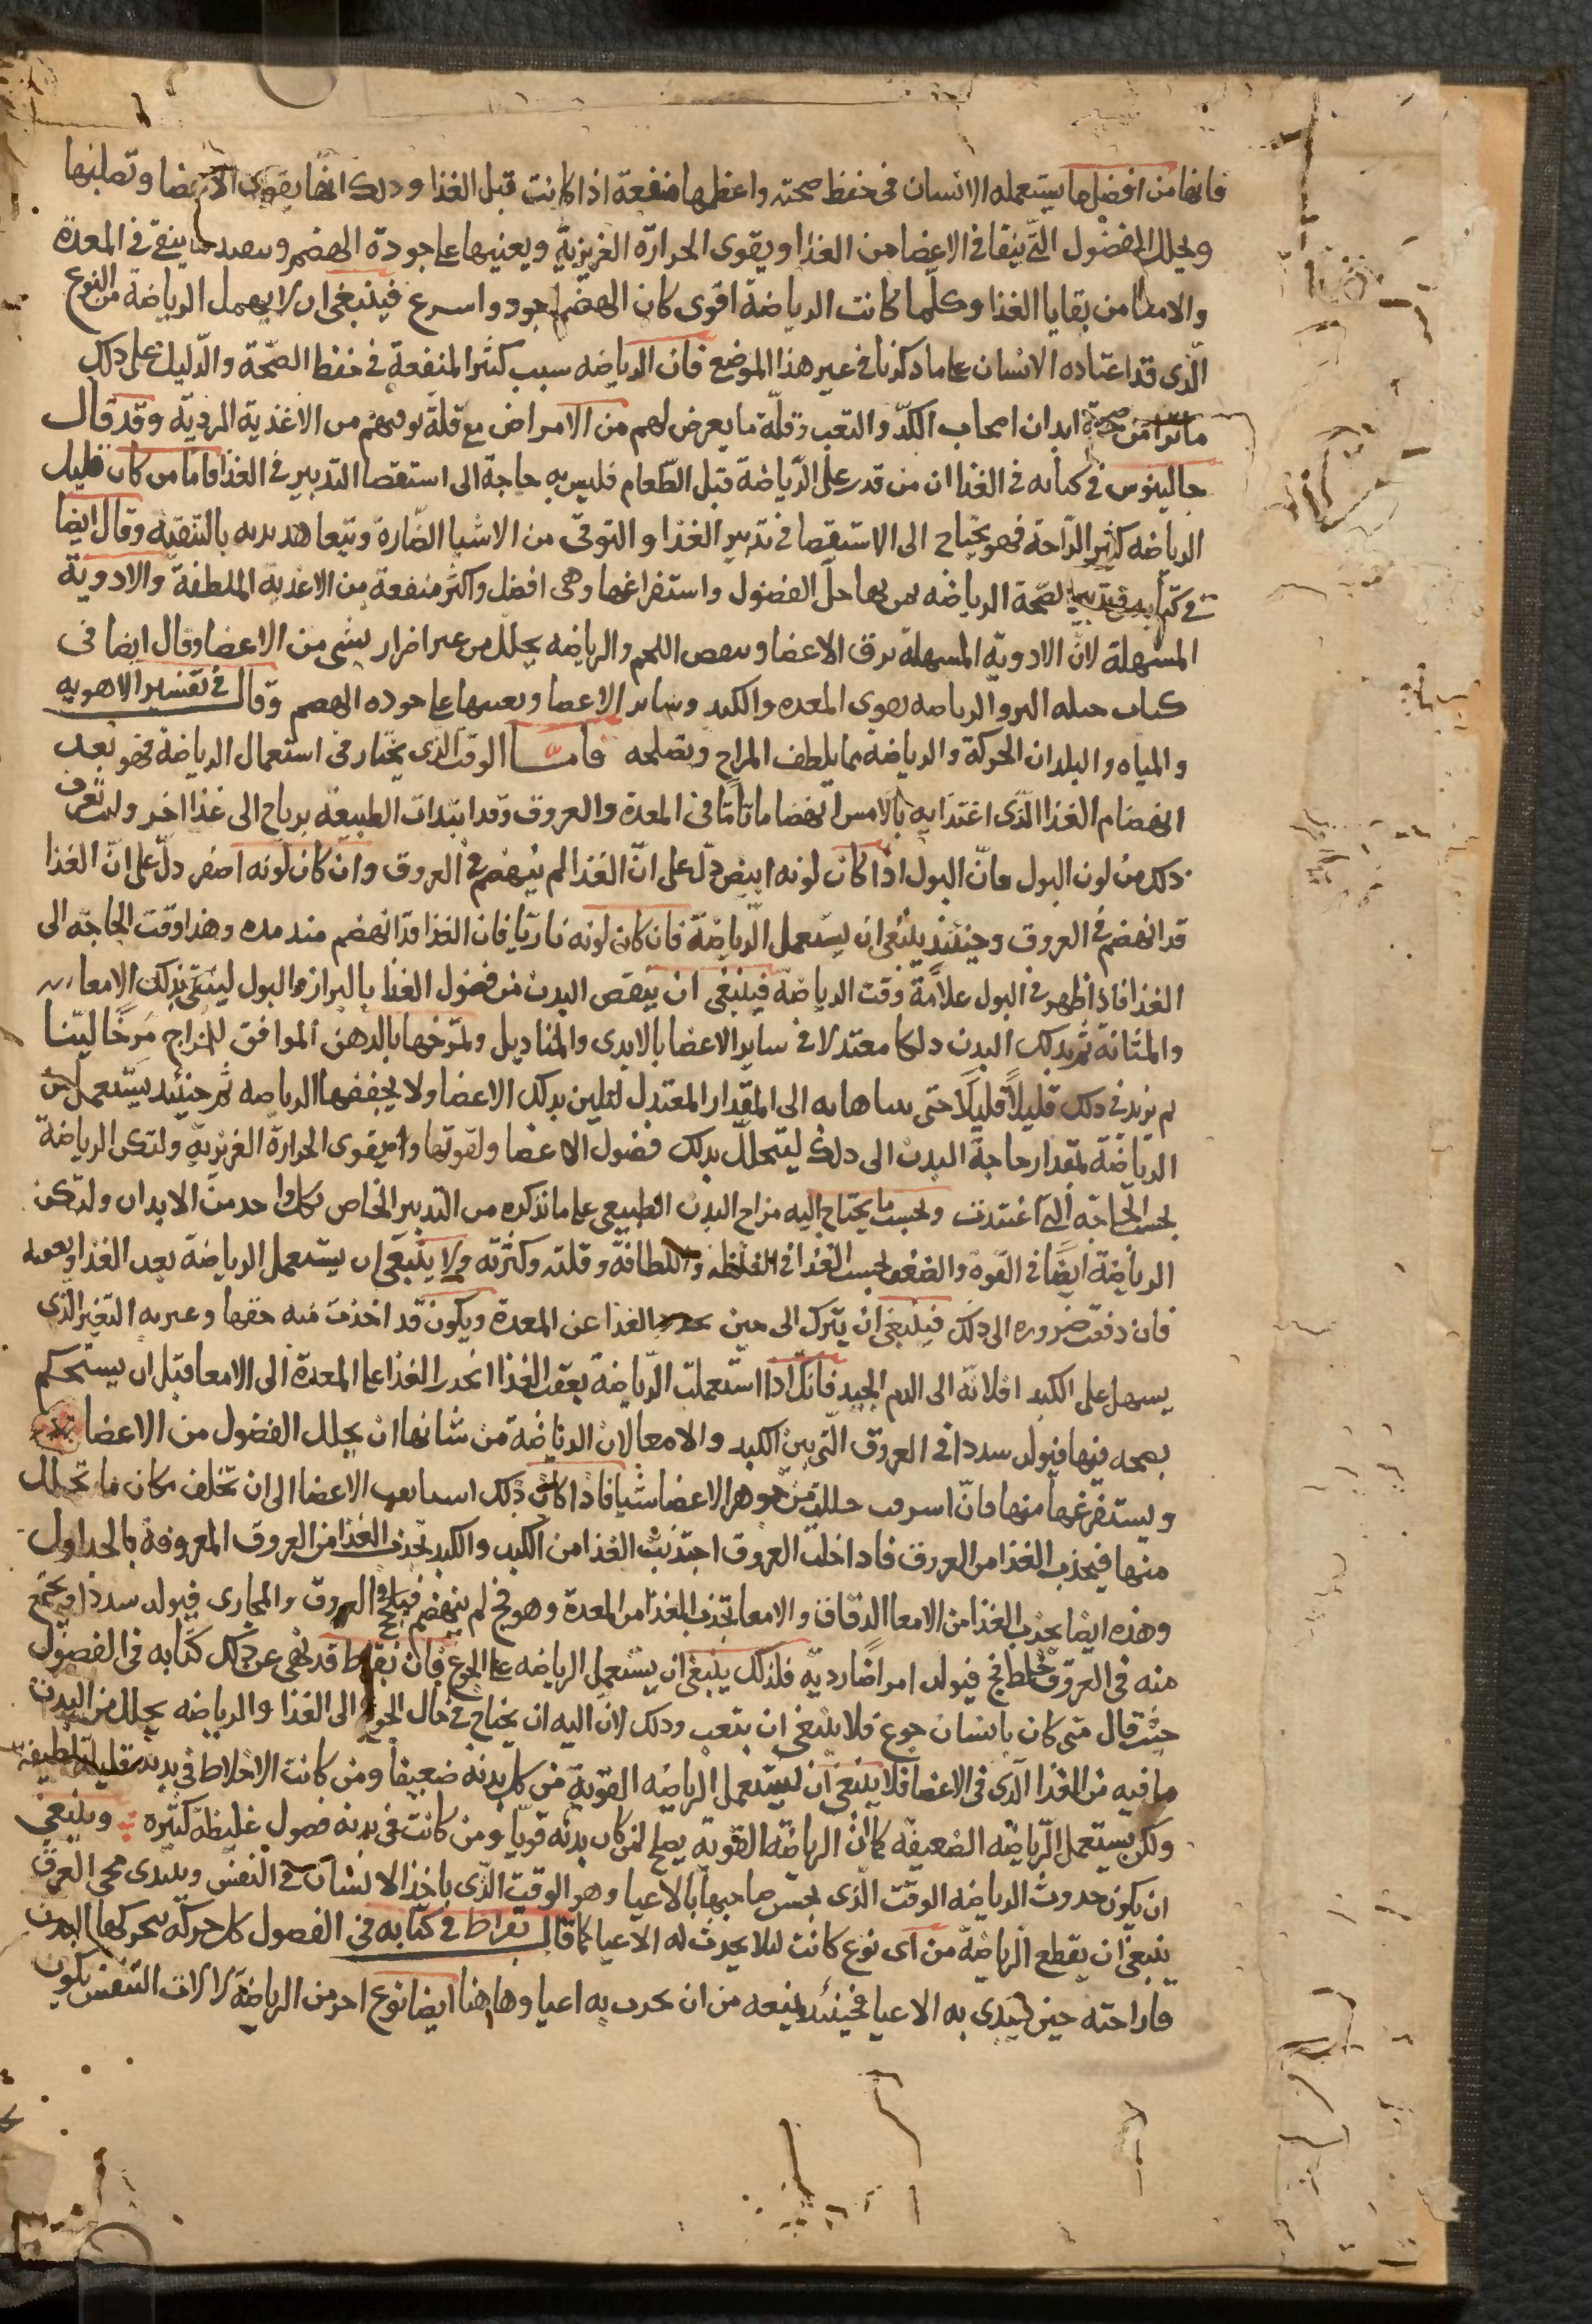 فانها من افضل ما يستعمله الانسان فى حفظ صحته واعظمها منفعة اذا كانت قبل الغذا وذلك انها يقوى الاعضا وتصلبها
ويحلل الفضول التى يبقا فى الاعضا من الغذا ويقوى الحرارة الغريزية ويعينها على جودة الهضم وسعد ما يبقى فى المعدة
والامعا من بقايا الغذا وكلما كانت الرياضة اقوى كان الهضم اجود واسرع فينبغى ان لا يهمل الرياضة من النوع
الذى قد اعتاده الانسان على ما ذكرنا فى غير هذا الموضع فان الرياضه سبب كثير المنفعة فى حفظ الصحة والدليل على ذلك
ما ترا من صحة ابدان اصحاب الكد والتعب وقلة ما يعرض لهم من الامراض مع قلة توقيهم من الاغذية الردية وقد قال
جالينوس فى كتابه فى الغذا ان من قدر على الرياضة قبل الطعام فليس به حاجة الى استقصا التدبير فى الغذا فاما من كان قليل
الرياضه كثير الراحة فهو يحتاج الى الاستقصا فى تدبير الغذا والتوقى من الاشيا الضارة ويتعاهد بدنه بالتنقية وقال ايضا
فى كتابه فى تدبير الصحة الرياضه بها حل الفضول واستفراغها وهى افضل واكثر منفعة من الاغذية الملطفة والادوية
المسهلة لان الادوية المسهلة ترق الاعضا وينقص اللحم والرياضه يحلل من غير اضرار بشى من الاعضا وقال ايضا فى
كتاب حيله البرو الرياضه يقوى المعده والكبد وساير الاعضا ويعينها على جوده الهضم وقال فى تفسير الاهويه
والمياه والبلدان الحركة والرياضة مما يلطف المزاج ويصلحه فاما الوقت الذى يختار فى استعمال الرياضة فهو بعد
انهضام الغذا الذى اغتذا به بالامس انهضاما تاما فى المعدة والعروق وقد ابتدات الطبيعة يرتاح الى غذا اخر ولتعرف
ذلك من لون البول فان البول اذا كان لونه ابيض دل على ان الغذا لم ينهضم فى العروق وان كان لونه اصفر دل على ان الغذا
قد انهضم فى العروق وحينئذ ينبغى ان يستعمل الرياضة فان كان لونه ناريا فان الغذا قد انهضم منذ مده وهذا وقت الحاجه الى
الغذا فاذا ظهر فى البول علامة وقت الرياضة فينبغى ان ينقص البدن من فضول الغذا بالبراز والبول لينقى بذلك الامعا
والمثانة ثم يدلك البدن دلكا معتدلا فى ساير الاعضا بالايدى والمناديل وتمرخها بالدهن الموافق للمزاج مرخا لينا
ثم يزيد فى ذلك قليلا قليلا حتى يتناها به الى المقدار المعتدل لتلين بذلك الاعضا ولا يجففها الرياضه ثم حينئذ يستعمل من
الرياضة بمقدار حاجة البدن الى ذلك ليتحلل بذلك فضول الاعضا ولقوتها ويقوى الحرارة الغريزية ولتكن الرياضة
بحسب الحاجه التى اعتدت وبحسب ما يحتاج اليه مزاج البدن الطبيعى على ما نذكره من التدبير الخاص بكل واحد من الابدان ولتكن
الرياضة ايضا فى القوة والضعف بحسب الغذا فى الغلظه واللطافة وقلته وكثرته ولا ينبغى ان يستعمل الرياضة بعد الغذا وبعقبه
فان دفعت ضروره الى ذلك فينبغى ان يترك الى حين الغذا عن المعدة ويكون قد اخذت منه حقها وغيرته التغير الذى
يسهل على الكبد اقلابه الى الدم الجيد فانك اذا استعملت الرياضة بعقب الغذا انحدر الغذا على المعدة الى الامعا قبل ان يستحكم
نضجه فيها فيولد سددا فى العروق التى بين الكبد والامعا لان الرياضة من شانها ان يحلل الفضول من الاعضا
ويستفرغها منها فان اسرفت حللت من جوهر الاعضا شيا فاذا كان ذلك الاعضا الى ان تخلف مكان ما تحلل
منها فيجذب الغذا من العروق فاذا خلت العروق اجتذبت الغذا من الكبد والكبد تجذب الغذا من العروق المعروفة بالجداول
وهذه ايضا يجذب الغذا من الامعا الدقاق والامعا تجذب الغذا من المعدة وهو فج لم ينهضم فيلحج فى العروق والمجارى فيولد سددا ويجتمع
منه فى العروق خلط فج فيولد امراضا رديه فلذلك ينبغى ان يستعمل الرياضه على الجوع فان بقراط قد نهى عن ذلك كتابه فى الفصول
حيث قال متى كان بانسان جوع فلا ينبغى ان يتعب وذلك لان اليه ان يحتاج فى حال الجوع الى الغذا والرياضه يحلل من البدن
ما فيه من الغذا الذى فى الاعضا فلا ينبغى ان يستعمل الرياضه القوية من كان بدنه ضعيفا ومن كانت الاخلاط فى بدنه قليله لطيفه
ولكن يستعمل الرياضه الضعيفه كما ان الرياضه القوية يصلح لمن كان بدنه قويا ومن كانت فى بدنه فضول غليظه كثيره وينبغى
ان يكون حدوث الرياضه الوقت الذى يحس صاحبها بالاعيا وهو الوقت الذى ياخذ الانسان فى النفس ويبتدى مجى العرق
ينبغى ان يقطع الرياضة من اى نوع كانت ليلا يحدث له الاعيا كما قال بقراط فى كتابه فى الفصول كل حركة يحركها البدن
فاراحته حين يبتدى به الاعيا فحينئذ يمنعه من ان يحدث به اعيا وهاهنا ايضا نوع اخر من الرياضة لالات التنفس يكون